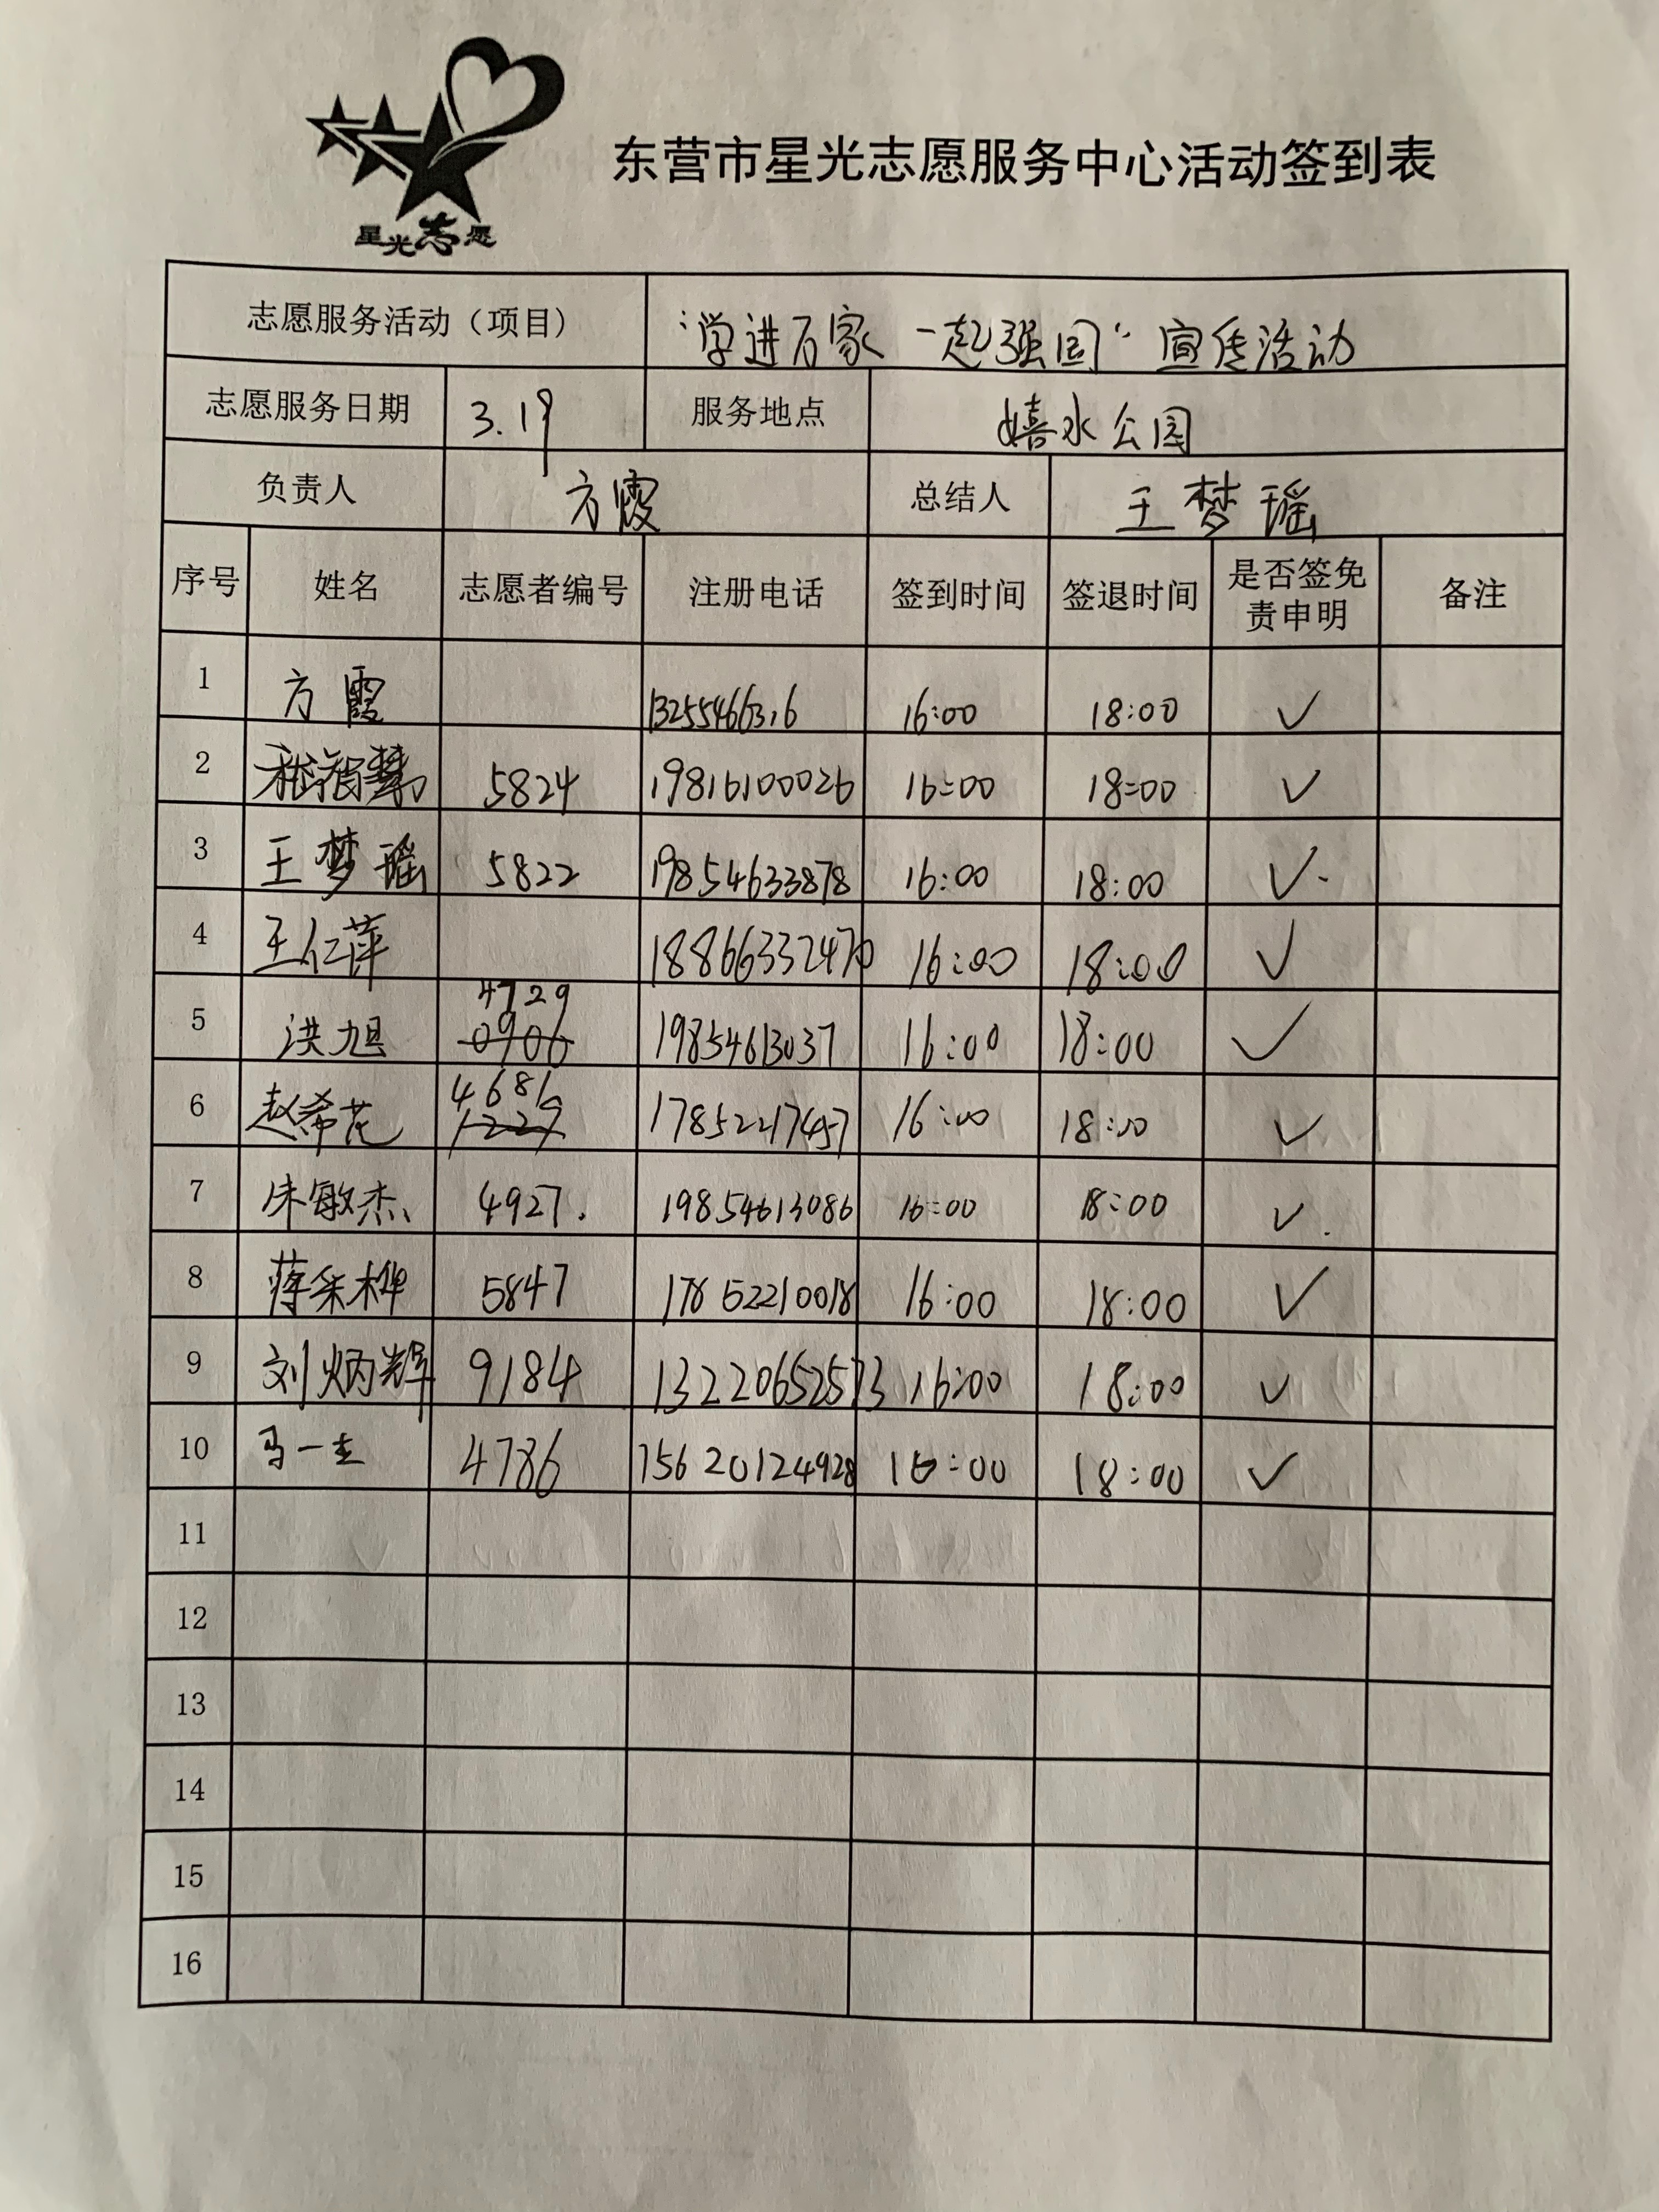 星光志愿
东营市星光志愿服务中心活动签到表
志愿服务活动（项目） “学进万家 一起强国” 宣传活动
志愿服务日期 3.19 服务地点 嬉水公园
负责人 方霞 总结人 王梦瑶
序号 姓名 志愿者编号 注册电话 签到时间 签退时间 是否签免责申明 备注
1 方霞 13255466316 16:00 18:00 ✓
2 5824 19816100026 16:00 18:00 ✓
3 王梦瑶 5822 19854633878 16:00 18:00 ✓
4 王仁萍 18866332470 16:00 18:00 ✓
5 洪旭 4729 0906 19854613037 16:00 18:00 ✓
6 赵希花 4681 1227 17852217457 16:00 18:00 ✓
7 朱敏杰 4927. 19854613086 16:00 18:00 ✓
8 蒋采桦 5847 17852210018 16:00 18:00 ✓
9 刘炳辉 9184 13220652573 16:00 18:00 ✓
10 马一 4786 15620124928 16:00 18:00 ✓
11
12
13
14
15
16